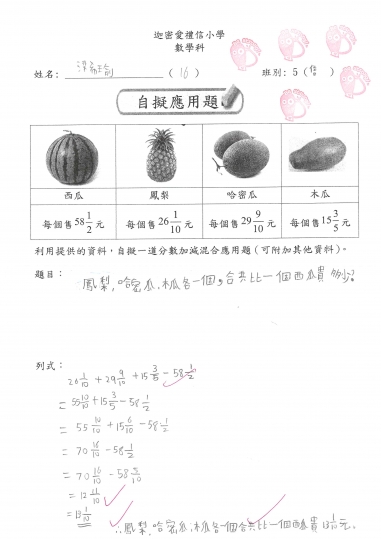 迦密愛禮信小學
數學科
姓名： （16） 班別：5（信）
自擬應用題
西瓜 鳳梨 哈密瓜 木瓜
每個售58 1/2元 每個售26 1/10元 每個售29 9/10元 每個售15 3/5元
利用提供的資料，自擬一道分數加減混合應用題（可附加其他資料）。
題目：鳳梨,哈密瓜,木瓜各一個,合共比一個西瓜貴多少?
列式：
26 1/10 + 29 9/10 + 15 3/5 - 58 1/2
= 55 10/10 + 15 3/5 - 58 1/2
= 55 10/10 + 15 6/10 - 58 1/2
= 70 16/10 - 58 1/2
= 70 16/10 - 58 5/10
= 12 11/10
= 13 1/10
∴鳳梨,哈密瓜,木瓜各一個合共比一個西瓜貴13 1/10元.